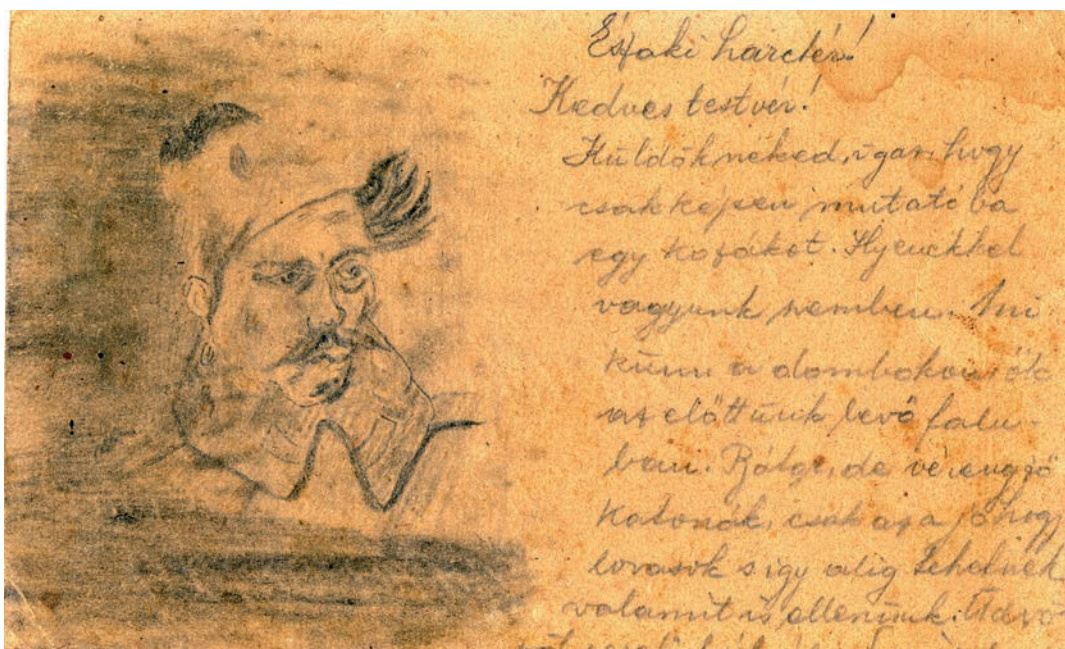 Északi harctér!
Kedves testvér!
Küldök néked, igaz, hogy
csak képen mutatóba
egy kozákot. Ilyenekkel
vagyunk szemben. Mi
künn a dombokon, ők
az előttünk levő falu-
ban. Bátor, de vérengző
katonák, csak az a jó hogy
lovasok s így alig tehetnek
valamit is ellenünk.